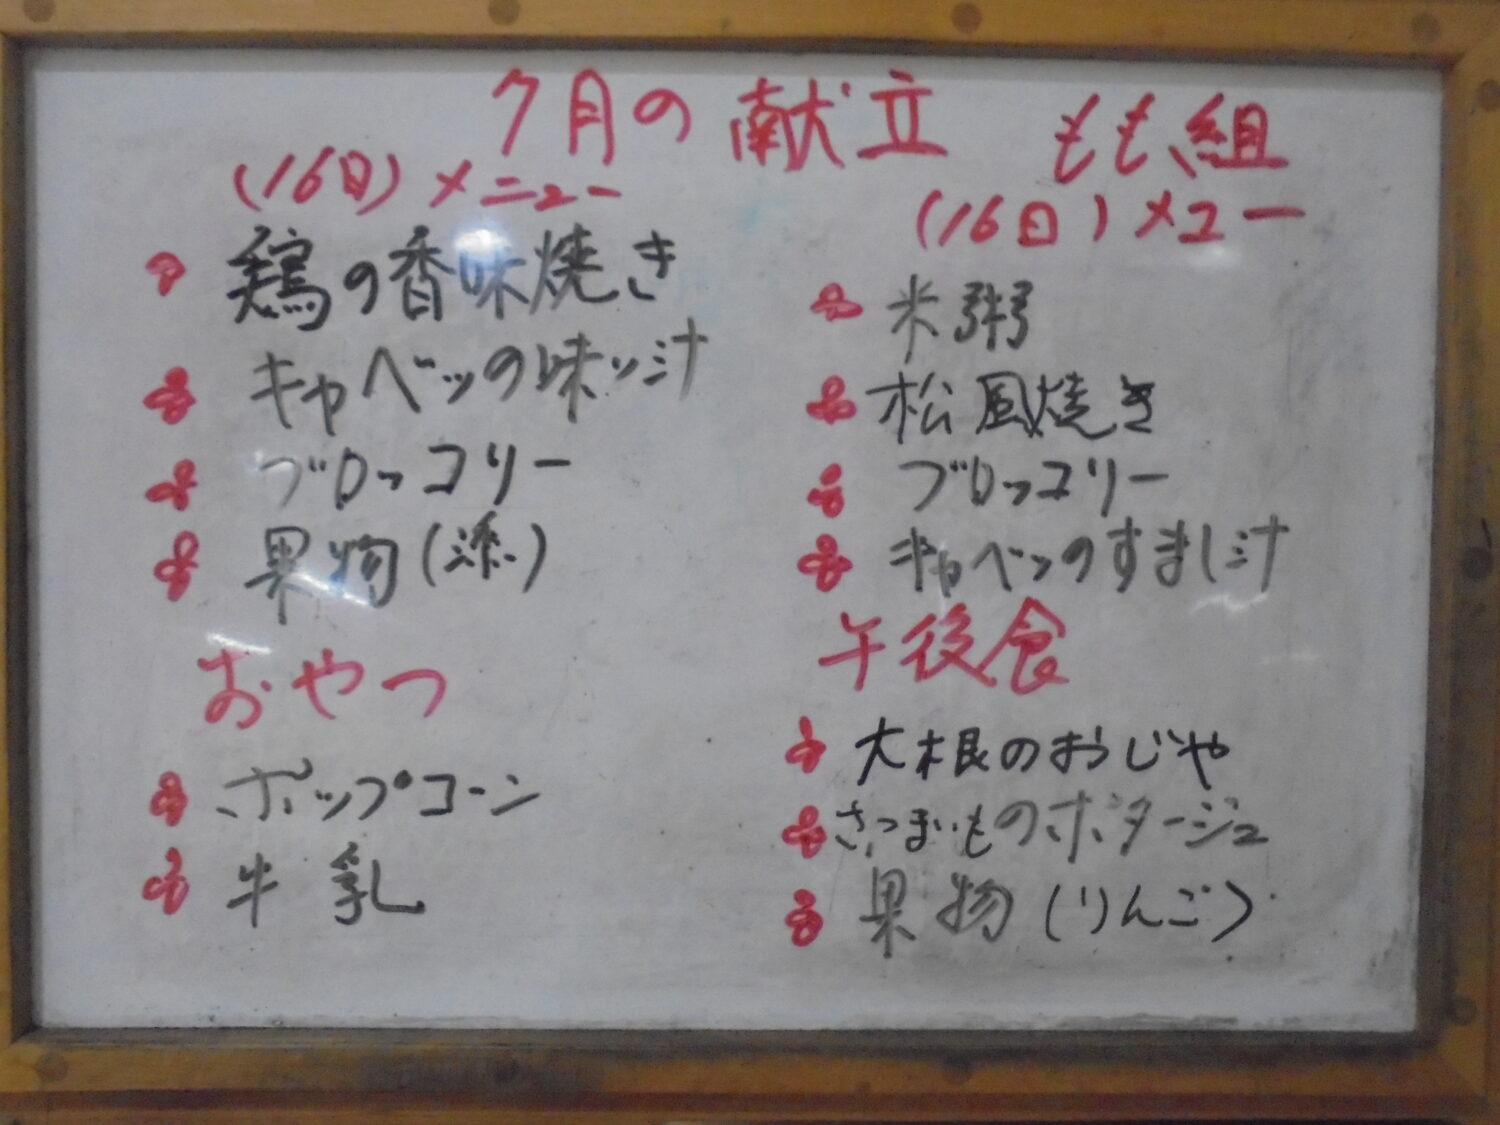 7月の献立
(16日)メニュー
鶏の香味焼き
キャベツの味ソ汁
ブロッコリー
果物(添)
おやつ
ポップコーン
牛乳
もも組
(16日)メユー
米粥
松風焼き
ブロッコリー
キャベツのすまし汁
午後食
大根のおじや
さつまいものポタージュ
果物(りんご)